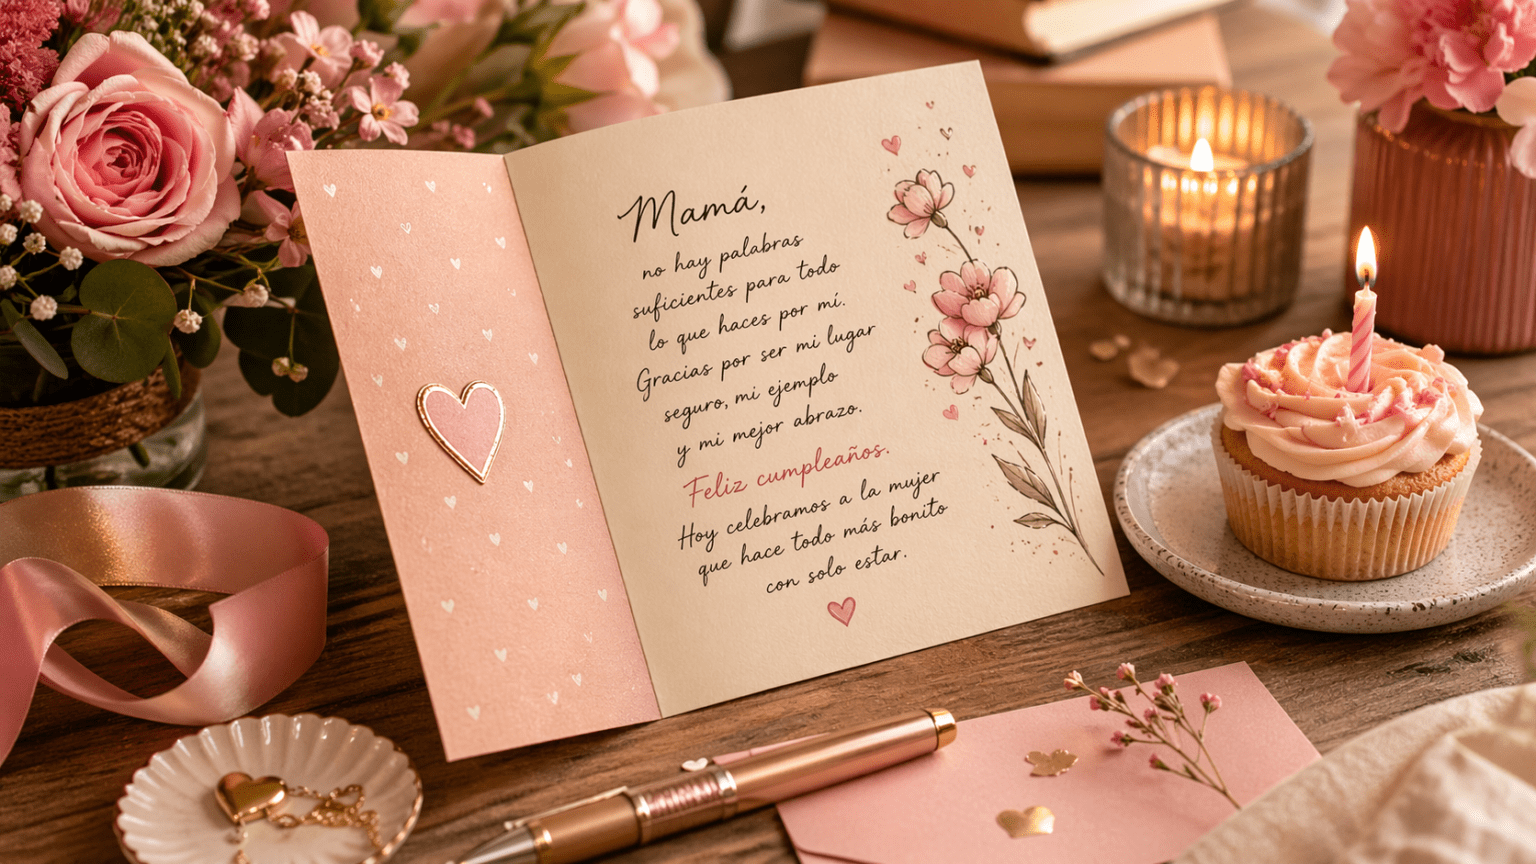 Mamá,
no hay palabras
suficientes para todo
lo que haces por mí.
Gracias por ser mi lugar
seguro, mi ejemplo
y mi mejor abrazo.
Feliz cumpleaños.
Hoy celebramos a la mujer
que hace todo más bonito
con solo estar.